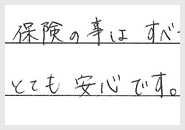 保険の事は すべ
とても 安心です。